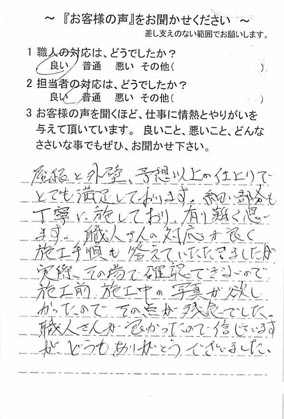 ～『お客様の声』をお聞かせください～
差し支えのない範囲でお願いします。
1 職人の対応は、どうでしたか?
良い 普通 悪い その他( )
2 担当者の対応は、どうでしたか?
良い 普通 悪い その他( )
3 お客様の声を聞くほど、仕事に情熱とやりがいを
与えて頂いています。 良いこと、悪いこと、どんな
ささいな事でもぜひ、お聞かせ下さい。
屋根と外壁、予想以上の仕上りで
とても満足しております。細い部分も
丁寧に施しており、有り難く思い
ます。職人さんの対応が良く
施工手順も答えていただきましたが
実際、その場で確認できないので
施工前、施工中の写真が欲し
かったので、その点が残念でした。
職人さんが良かったので信じています
が、どうもありがとうございました。